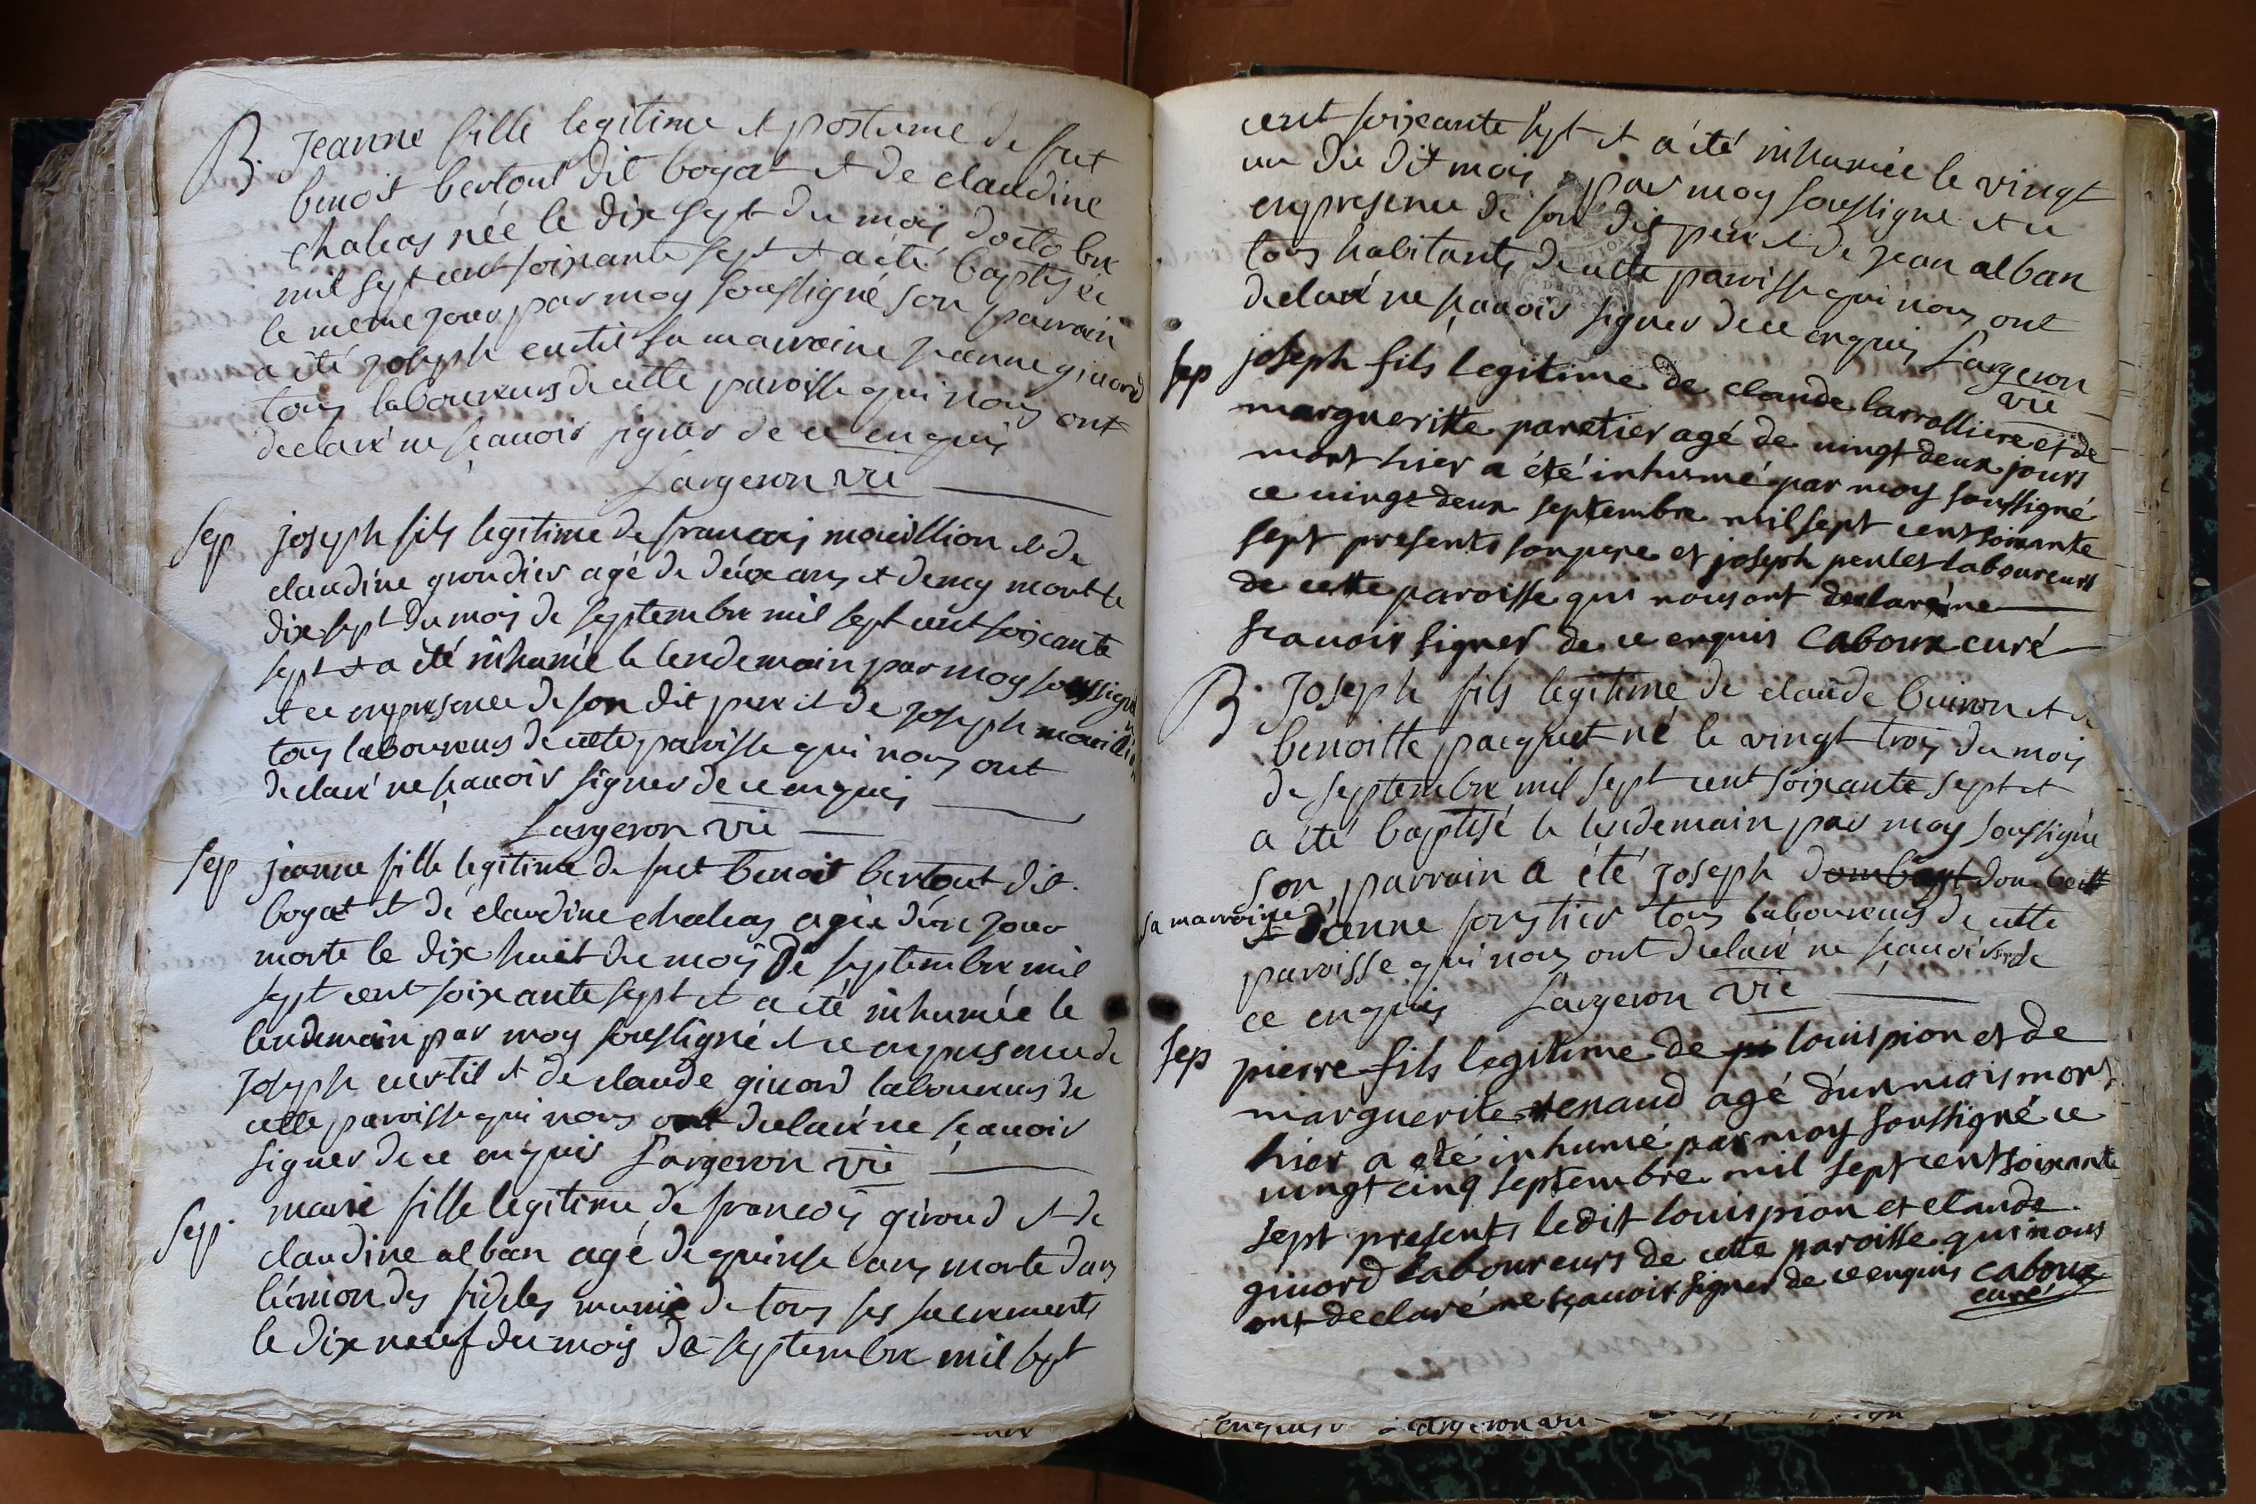 B. Jeanne fille legitime et postume de feu
benoit bertout dit boyat et de claudine
chaleas née le dix sept du mois doctobre
mil sept cent soixante sept et a été baptisée
le meme jour par moy soussigné son parrain
a été joseph curtil sa marraine jeanne giuord
tous laboureurs de cette paroisse qui nous ont
declaré ne sçauoir signer de ce enquis
Largeron vic
sep joseph fils legitime de francois mouillion et de
claudine grondier agé de deux ans et demy mort le
dix sept du mois de septembre mil sept cent soixante
sept et a été inhumé le lendemain par moy soussigné
et ce en presence de son dit pere et de joseph mouillion
tous laboureurs de cette paroisse qui nous ont
declaré ne sçauoir signer de ce enquis
Largeron vic
sep jeanne fille legitime de feu benoit bertout dit
boyat et de claudine chaleas agée d'un jour
morte le dix huit du mois de septembre mil
sept cent soixante sept et a été inhumée le
lendemain par moy soussigné et ce en presence de
joseph curtil et de claude giuord laboureurs de
cette paroisse qui nous ont declaré ne sçauoir
signer de ce enquis Largeron vic
sep. marie fille legitime de francois giroud et de
claudine alban agé de quinse ans morte dans
l'union des fideles munie de tous ses sacrements
le dix neuf du mois de septembre mil sept
cent soixante sept et a été inhumée le vingt
un du dit mois par moy soussigné et ce
en presence de son dit pere et de jean alban
tous habitants de cette paroisse qui nous ont
declaré ne sçauoir signer de ce enquis Largeron
vic
sep joseph fils legitime de claude larrolliere et de
margueritte paretier agé de uingt deux jours
mort hier a été inhumé par moy soussigné
ce uingt deux septembre mil sept cent soixante
sept presents son pere et joseph perret laboureurs
de cette paroisse qui nous ont declaré ne
scauoir signer de ce enquis caboux curé
B. Joseph fils legitime de claude buiron et de
benoitte pacquet né le vingt trois du mois
de septembre mil sept cent soixante sept et
a été baptisé le lendemain par moy soussigné
son parrain a été joseph dombeyt dombeitt
sa marroine jeanne forstier tous laboureurs de cette
paroisse qui nous ont declaré ne sçauoir signer de
ce enquis Largeron vic
sep pierre fils legitime de pi louis pion et de
marguerite renaud agé d'un mois mort
hier a été inhumé par moy soussigné ce
uingt cinq septembre mil sept cent soixante
sept presents ledit louis pion et claude
giuord laboureurs de cette paroisse qui nous
ont declaré ne sçauoir signer de ce enquis caboux
curé
enquis Largeron vic